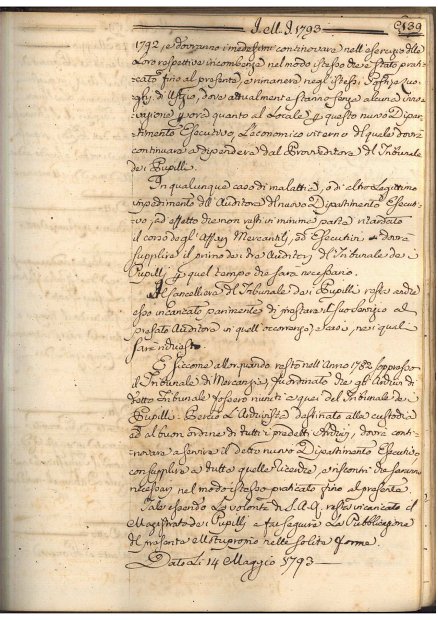 Dell' A. 1793
139
1792, e dovranno i medesimi continovare nell'esercizio delle
Loro respettive incombenze nel modo istesso che è stato prati-
cato fino al presente, e rimanere negli istessi Posti, e Luo-
ghi di Ufizio, dove attualmente stanno senza alcuna inno-
vazione per ora quanto al Locale per questo nuovo Dipar-
timento Esecutivo, L'economico interno del quale dovrà
continuare a dipendere dal Provveditore del Tribunale
dei Pupilli
In qualunque caso di malattie, o di altro Legittimo
impedimento dell' Auditore del nuovo Dipartimento Esecu-
tivo, ad effetto che non resti in minima parte ritardato
il corso degl' Affari Mercantili, ed Esecutivi dovrà
supplire il primo dei tre Auditori del Tribunale dei
Pupilli per quel tempo che sarà necessario.
Il Cancelliere del Tribunale dei Pupilli resta anche
esso incaricato parimente di prestare il suo servizio al
prefato Auditore in quell' occorrenze, e casi, nei quali
sarà richiesto.
E siccome allorquando restò nell' Anno 1782 soppresso
il Tribunale di Mercanzia, fu ordinato che gli Archivi di
detto Tribunale fossero riuniti a quei del Tribunale dei
Pupilli. Perciò L' Archivista destinato alla custodia
ed al buon ordine di tutti i predetti Archivi, dovrà conti-
novare a servire il detto nuovo Dipartimento Esecutivo
con supplire a tutte quelle ricerche, e riscontri che saranno
necessari nel modo istesso praticato fino al presente
Tale essendo La volontà di S. A. R. resta incaricato il
Magistrato dei Pupilli a far seguire La Pubblicazione
del presente nelle solite forme
Dato Li 14 Maggio 1793